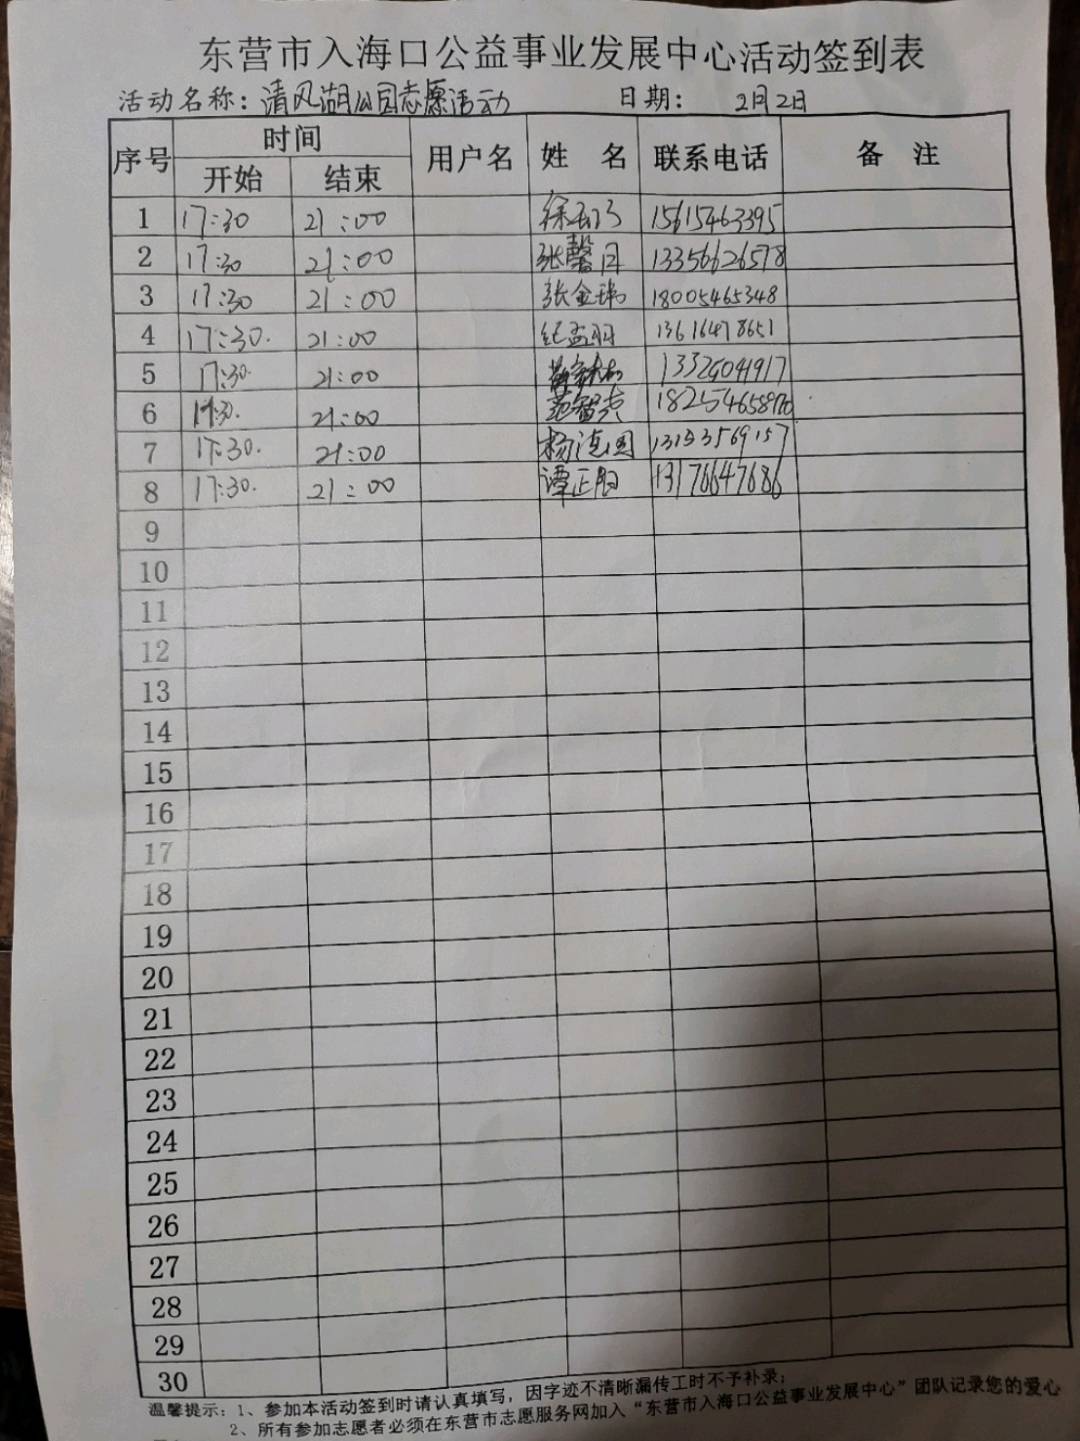 东营市入海口公益事业发展中心活动签到表
活动名称：清风湖公园志愿活动 日期： 2月2日
序号 时间 用户名 姓 名 联系电话 备 注
开始 结束
1 17:30 21:00 15615463395
2 17:30 21:00 张馨月 13356626578
3 17:30 21:00 张金瑞 18005465348
4 17:30. 21:00 纪孟羽 13616478651
5 17:30. 21:00
6 17:30. 21:00 范智杰
7 17:30. 21:00
8 17:30. 21:00 谭正阳 13176647686
9
10
11
12
13
14
15
16
17
18
19
20
21
22
23
24
25
26
27
28
29
30
温馨提示：1、参加本活动签到时请认真填写，因字迹不清晰漏传工时不予补录；
2、所有参加志愿者必须在东营市志愿服务网加入“东营市入海口公益事业发展中心”团队记录您的爱心